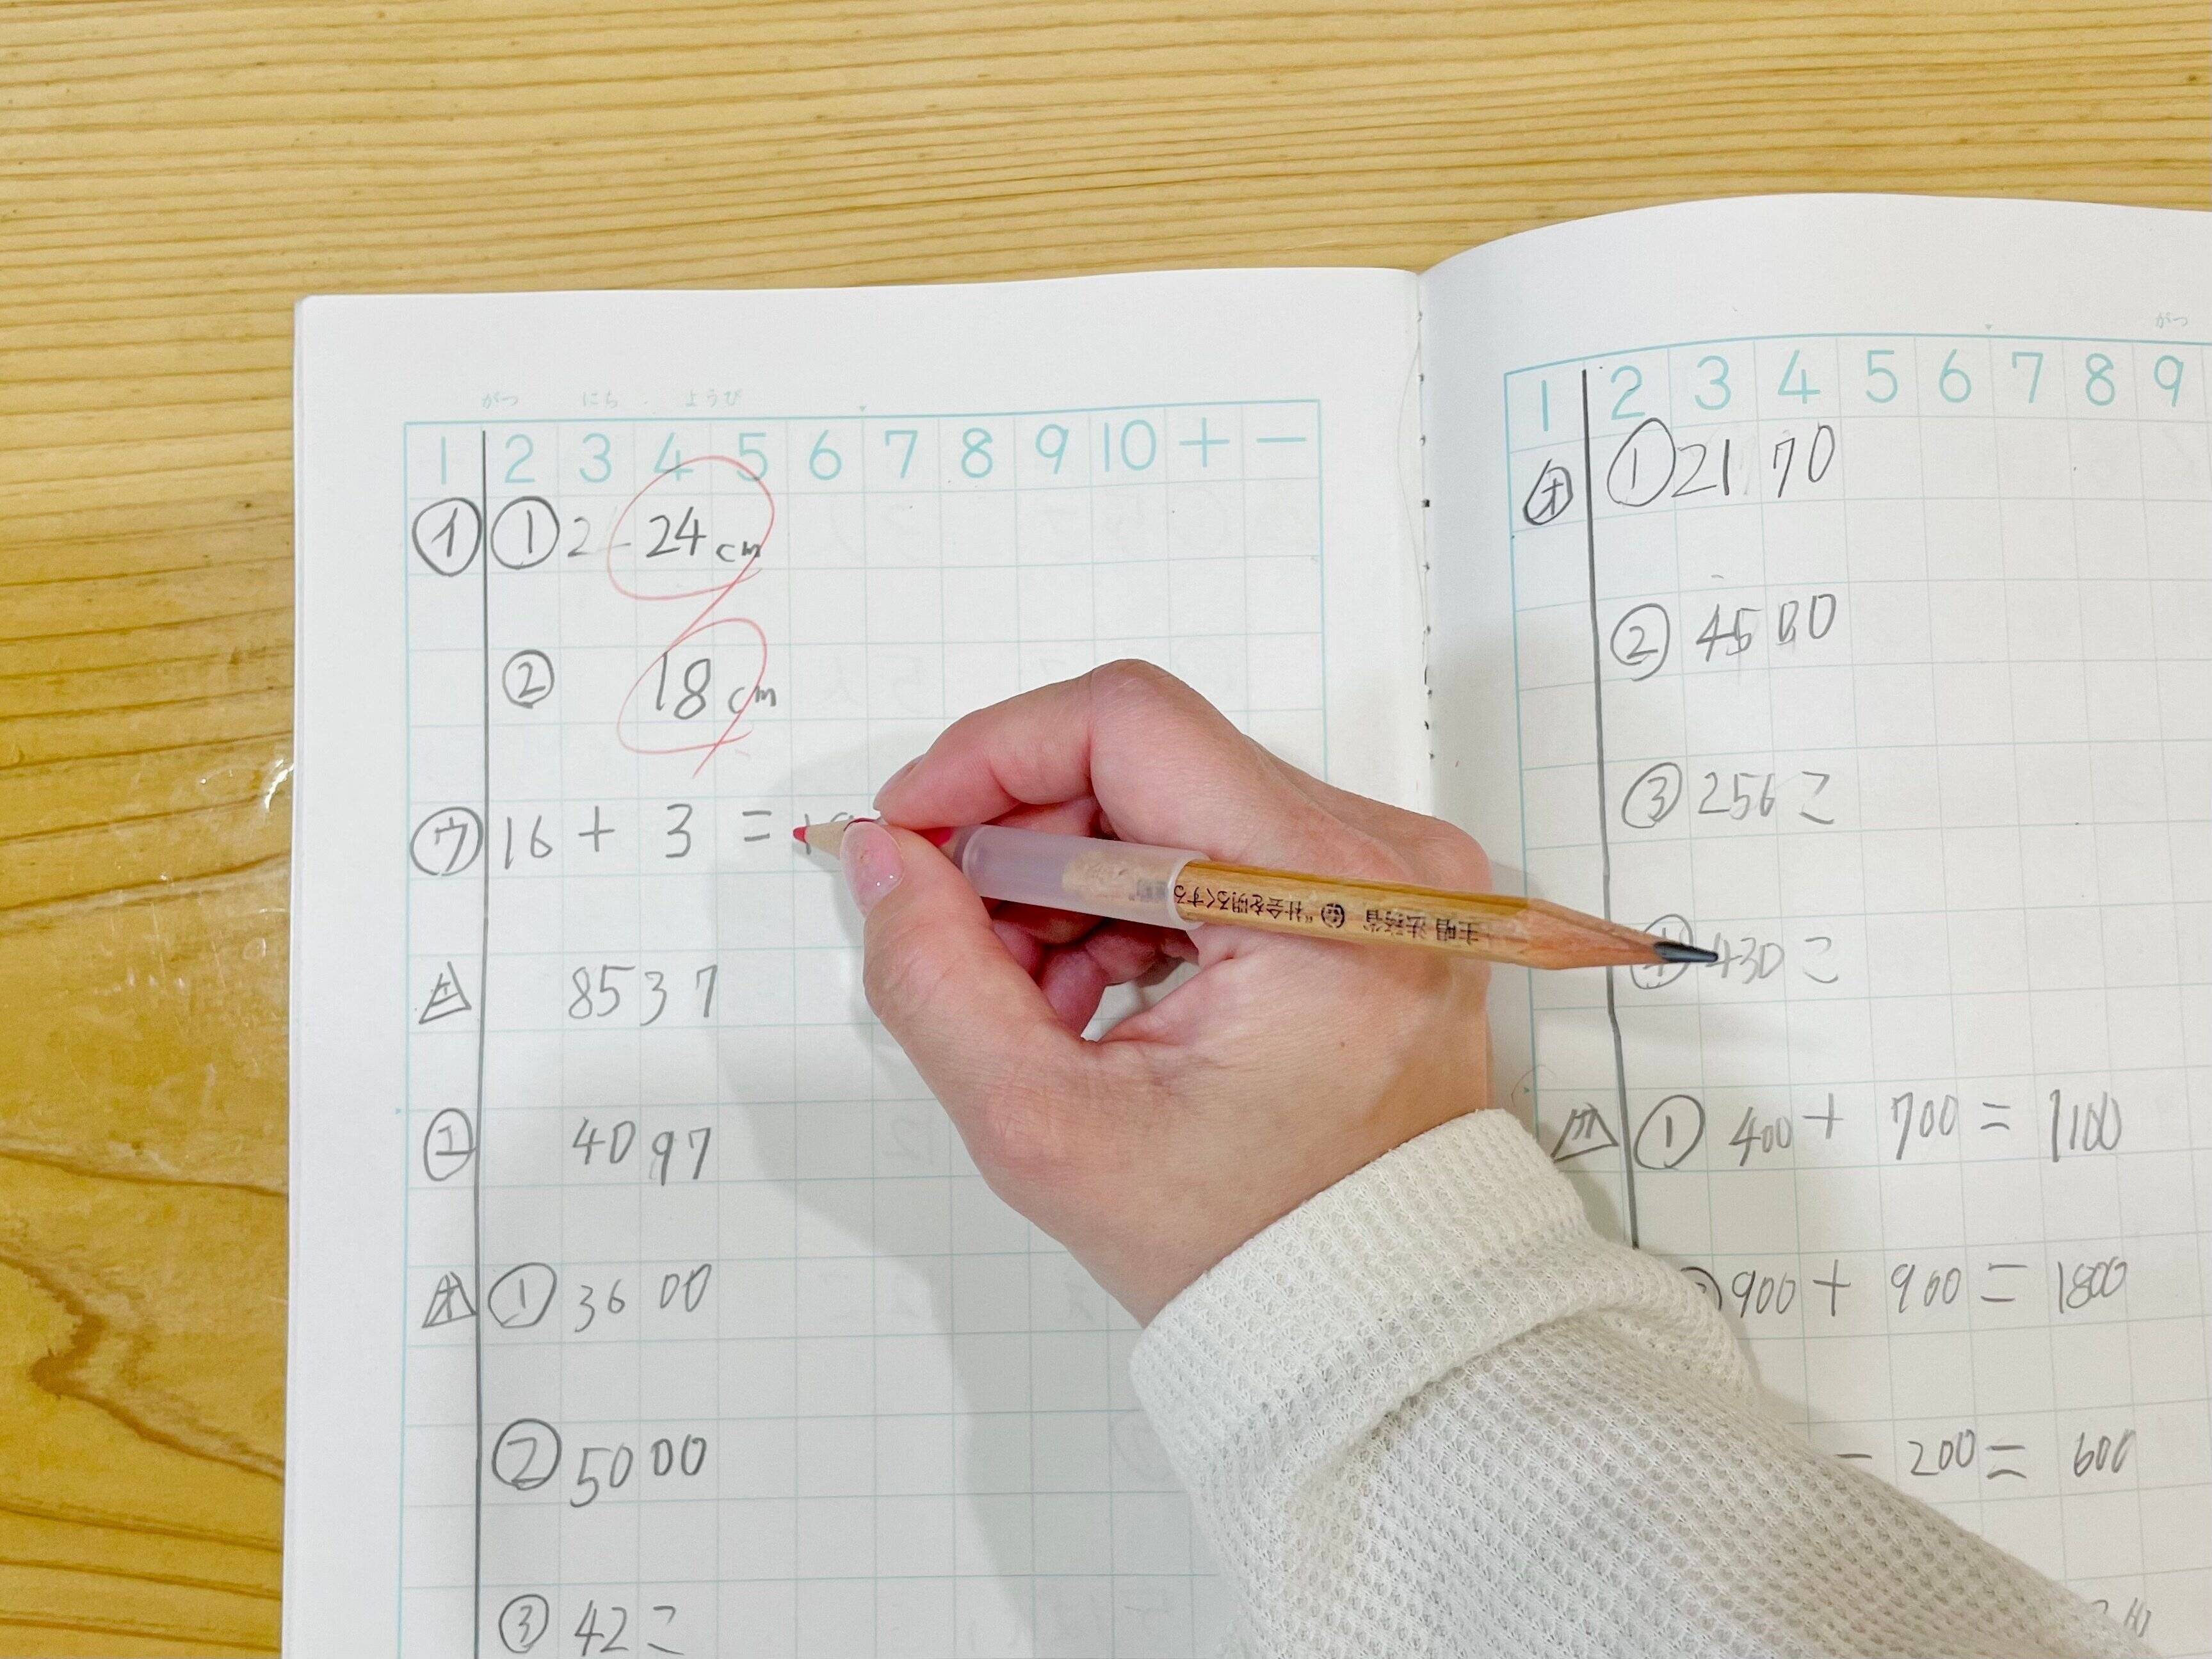 がつ にち ようび
1 2 3 4 5 6 7 8 9 10 + −
イ ① 24cm
② 18cm
ウ 16 + 3 =
8537
エ 4097
オ ① 3600
② 5000
③ 42こ
主唱 法務省 "社会を明るくする
がつ
1 2 3 4 5 6 7 8 9
オ ① 2170
② 4500
③ 256こ
430こ
① 400 + 700 = 1100
900 + 900 = 1800
− 200 = 600